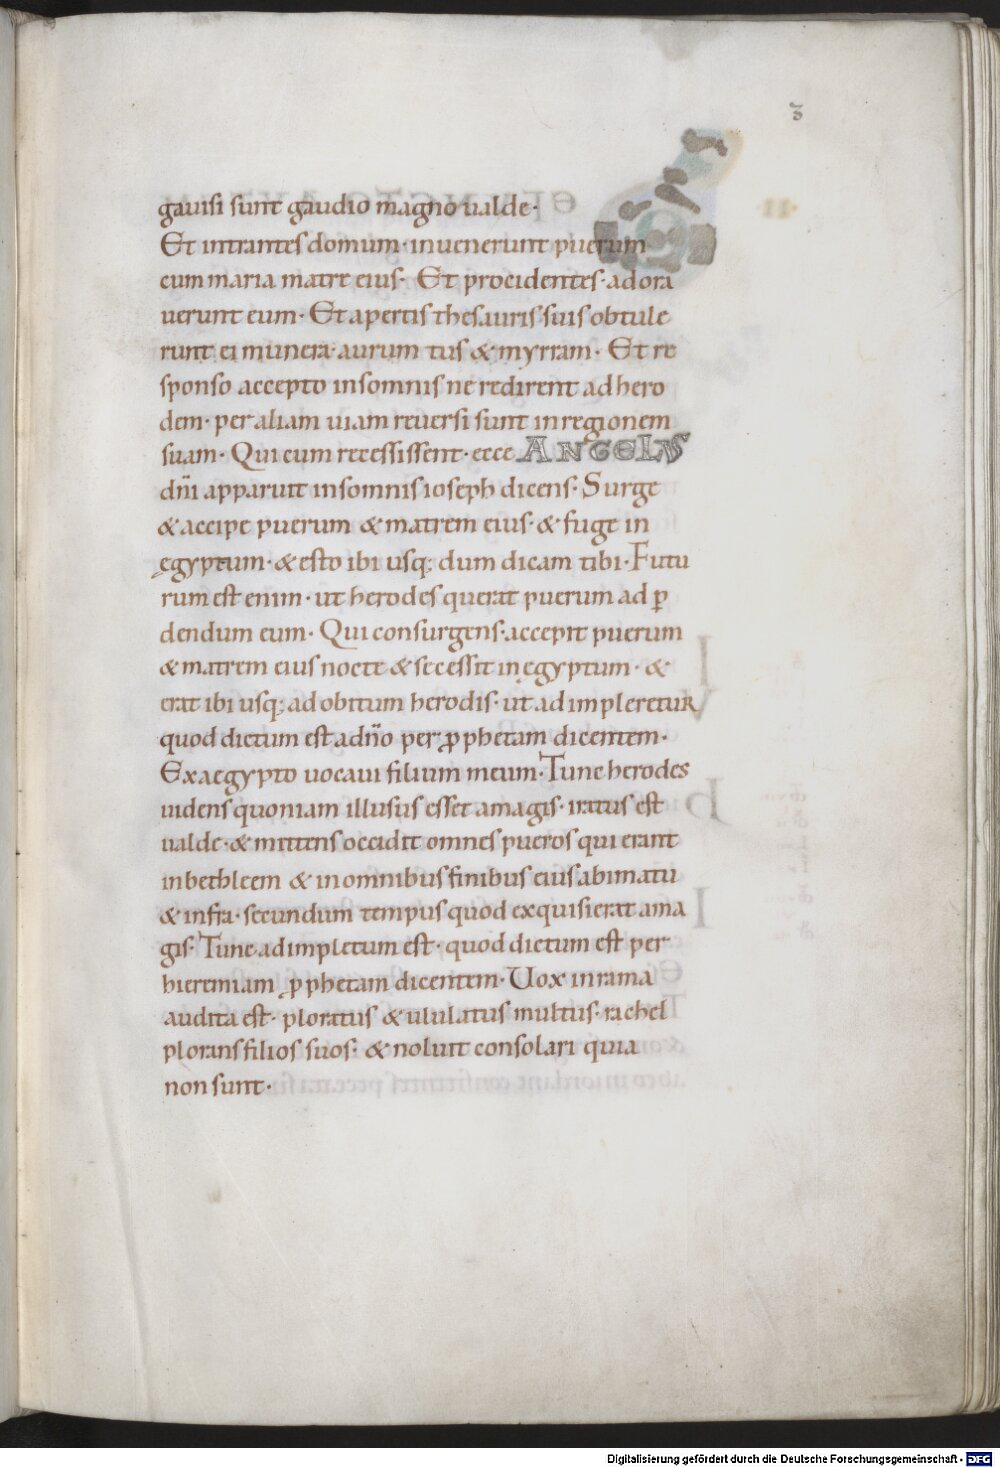 3
gauisi sunt gaudio magno ualde·
Et intrantes domum· inuenerunt puerum
cum maria matre eius· Et procidentes· adora
uerunt eum· Et apertis thesauris suis obtule
runt ei munera· aurum tus & myrram· Et re
sponso accepto insomnis ne redirent ad hero
dem· per aliam uiam reuersi sunt in regionem
suam· Qui cum recessissent· ecce ANGELUS
dn̄i apparuit insomnis ioseph dicens· Surge
& accipe puerum & matrem eius· & fuge in
ęgyptum· & esto ibi usq; dum dicam tibi· Futu
rum est enim· ut herodes querat puerum ad ꝑ
dendum eum· Qui consurgens· accepit puerum
& matrem eius nocte & secessit in ęgyptum· &
erat ibi usq; ad obitum herodis· ut adimpleretur
quod dictum est a dn̄o per ꝓphetam dicentem·
Ex aegypto uocaui filium meum· Tunc herodes
uidens quoniam illusus esset a magis· iratus est
ualde· & mittens occidit omnes pueros qui erant
in bethleem & in omnibus finibus eius a bimatu
& infra· secundum tempus quod exquisierat a ma
gis· Tunc adimpletum est· quod dictum est per
hieremiam ꝓphetam dicentem· Uox in rama
audita est· ploratus & ululatus multus· rachel
plorans filios suos· & noluit consolari quia
non sunt·
Digitalisierung gefördert durch die Deutsche Forschungsgemeinschaft - DFG